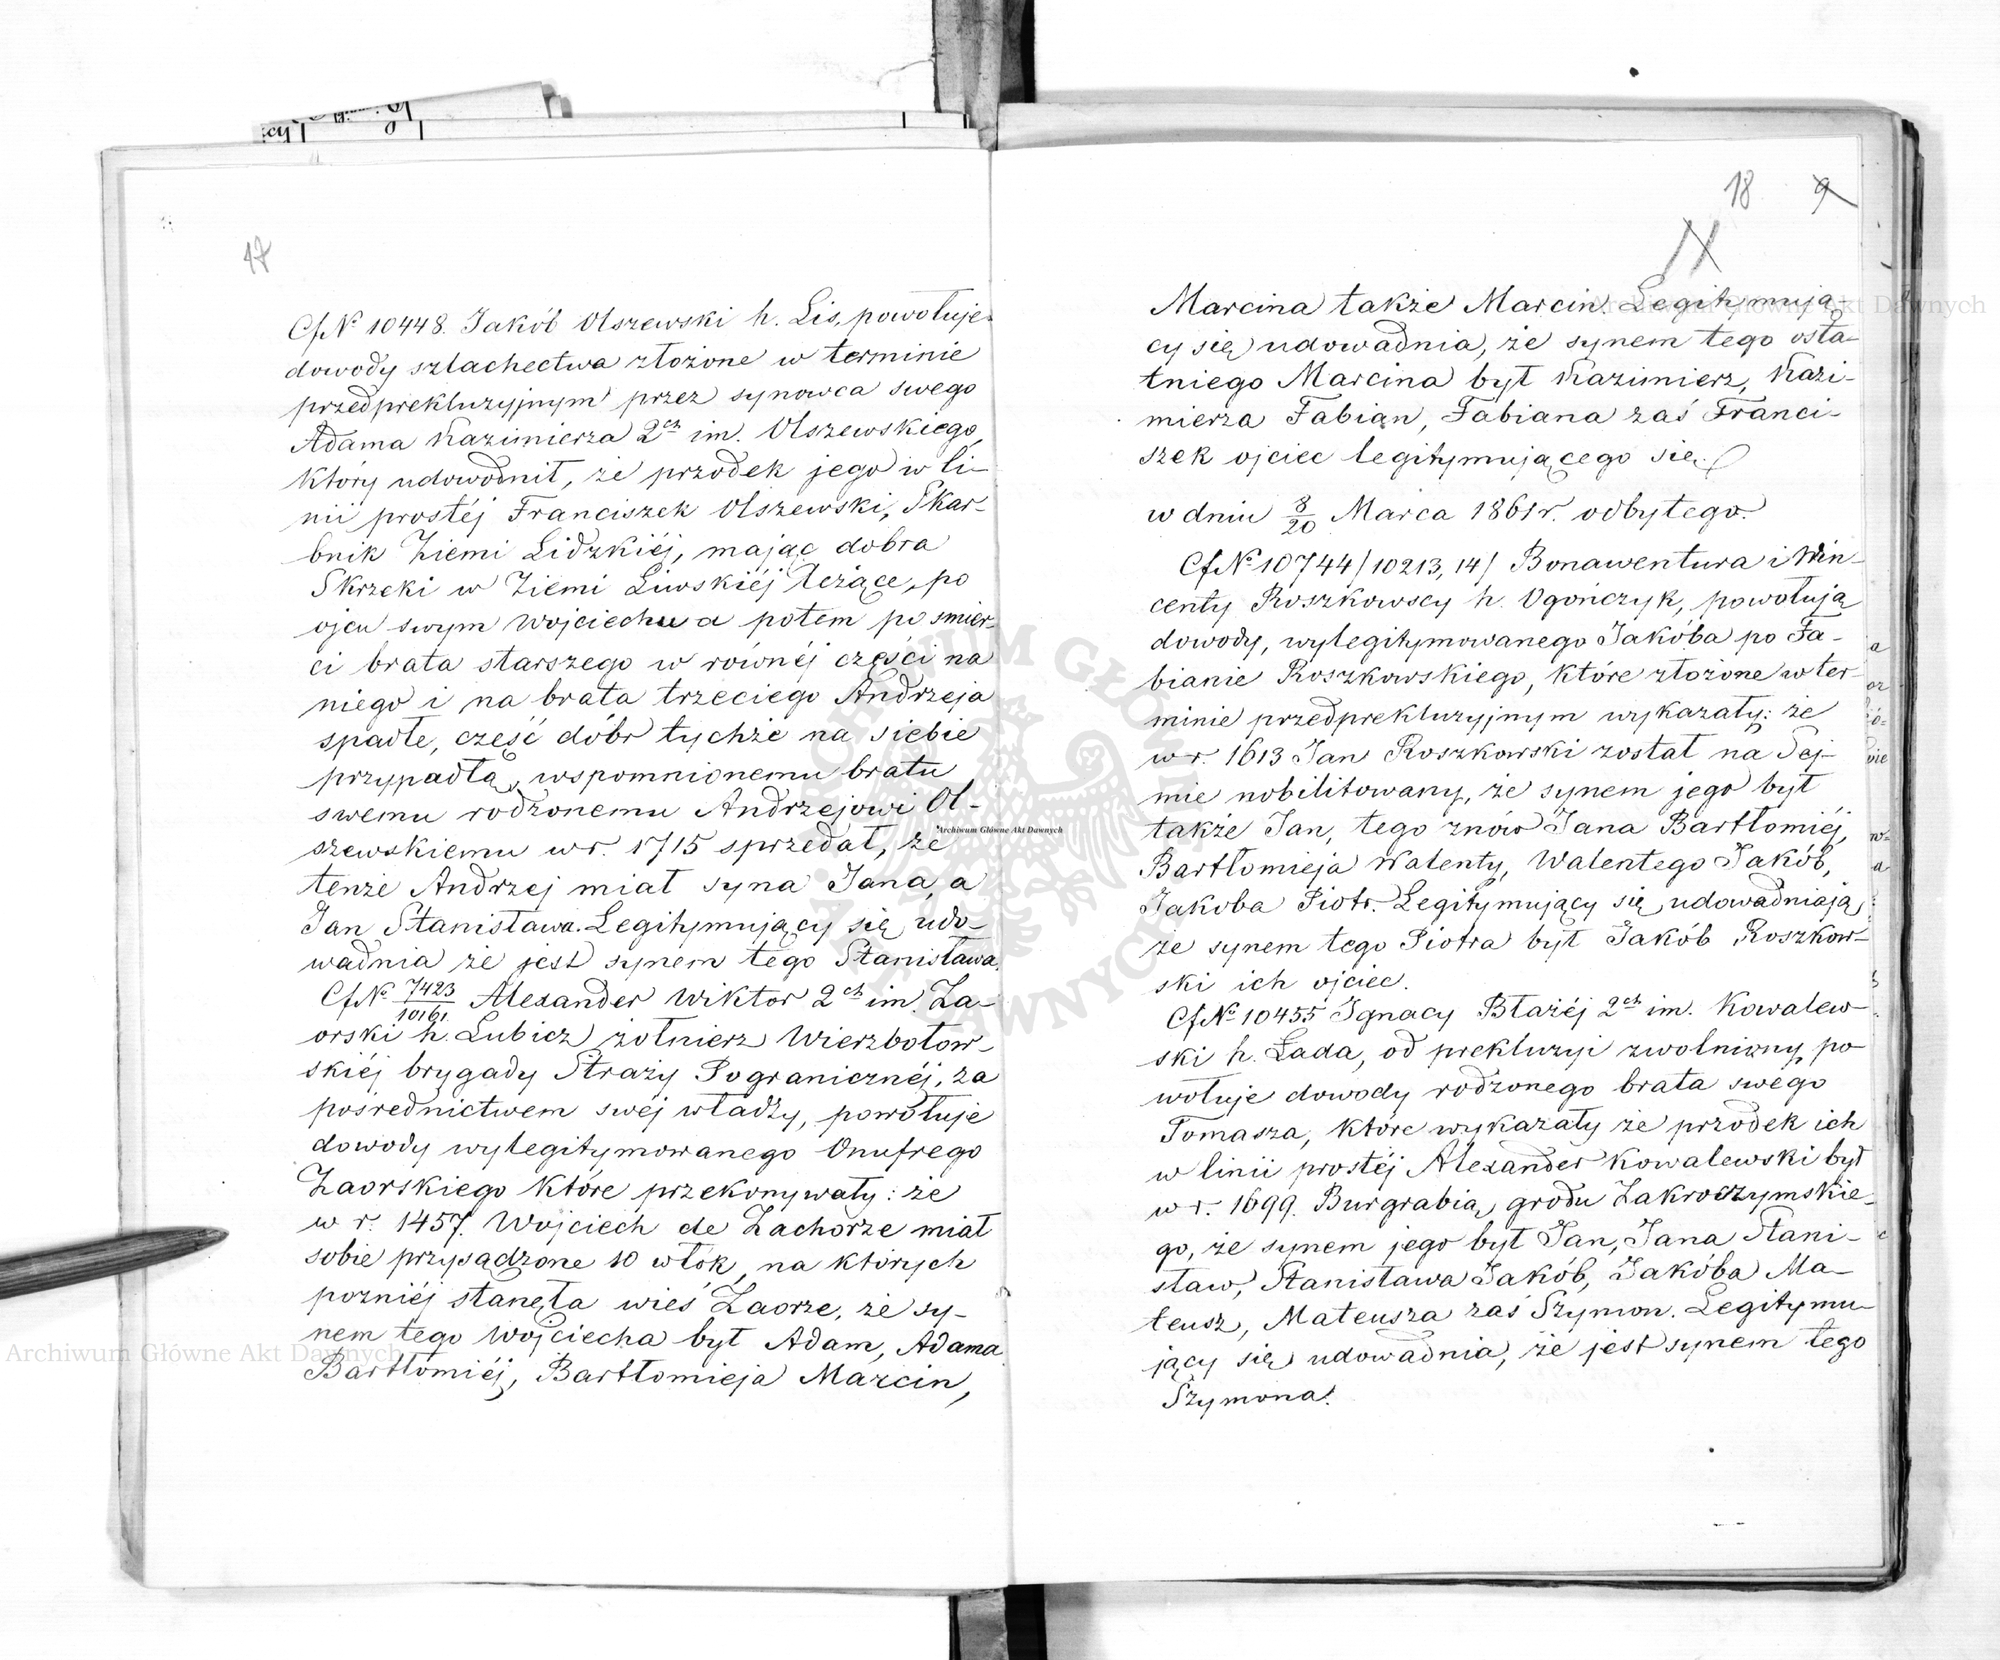 17
Cf№ 10448. Jakób Olszewski h. Lis, powołuje
dowody szlachectwa złożone w terminie
przedprekluzyjnym przez synowca swego
Adama Kazimierza 2ch im. Olszewskiego,
który udowodnił, że przodek jego w li-
nii prostéj Franciszek Olszewski, Skar-
bnik Ziemi Lidzkiéj, mając dobra
Skrzeki w Ziemi Liwskiéj leżące, po
ojcu swym Wojciechu a potem po smier-
ci brata starszego w równéj części na
niego i na brata trzeciego Andrzeja
spadłe, cześć dóbr tychże na siebie
przypadłą, wspomnionemu bratu
swemu rodzonemu Andrzejowi Ol-
szewskiemu w r. 1715 sprzedał, że
tenże Andrzej miał syna Jana, a
Jan Stanisława. Legitymujący się udo-
wadnia że jest synem tego Stanisława.
Cf№ 7423/10161 Alexander Wiktor 2ch im. Za-
orski h. Lubicz żołnierz Wierzbołow-
skiéj brygady Straży Pogranicznéj, za
pośrednictwem swéj władzy, powołuje
dowody wylegitymowanego Onufrego
Zaorskiego które przekonywały: że
w r. 1457. Wojciech de Zachorze miał
sobie przysądzone 10 włók, na których
pozniéj stanęła wieś Zaorze, że sy-
nem tego Wojciecha był Adam, Adama
Bartłomiéj, Bartłomieja Marcin,
18 9
Marcina także Marcin. Legitymują-
cy się udowadnia, że synem tego osta-
tniego Marcina był Kazimierz, Kazi-
mierza Fabian, Fabiana zaś Franci-
szek ojciec legitymującego się.
w dniu 8/20 Marca 1861 r. odbytego.
Cf№ 10744/10213, 14/ Bonawentura i Win-
centy Roszkowscy h. Ogończyk, powołują
dowody, wylegitymowanego Jakóba po Fa-
bianie Roszkowskiego, które złożone w ter-
minie przedprekluzyjnym wykazały: że
w r. 1613 Jan Roszkowski został na Sej-
mie nobilitowany, że synem jego był
także Jan, tego znów Jana Bartłomiéj,
Bartłomieja Walenty, Walentego Jakób,
Jakoba Piotr. Legitymujący się udowadniają
że synem tego Piotra był Jakób Roszkow-
ski ich ojciec.
Cf№ 10455 Ignacy Błażéj 2ch im. Kowalew-
ski h. Łada, od prekluzyi zwolniony, po-
wołuje dowody rodzonego brata swego
Tomasza, które wykazały że przodek ich
w linii prostéj Alexander Kowalewski był
w r. 1699. Burgrabią grodu Zakroczymskie-
go, że synem jego był Jan, Jana Stani-
sław, Stanisława Jakób, Jakóba Ma-
teusz, Mateusza zaś Szymon. Legitymu-
jący się udowadnia, że jest synem tego
Szymona.
Archiwum Główne Akt Dawnych
Archiwum Główne Akt Dawnych
Archiwum Główne Akt Dawnych
ARCHIWUM GŁÓWNE AKT DAWNYCH